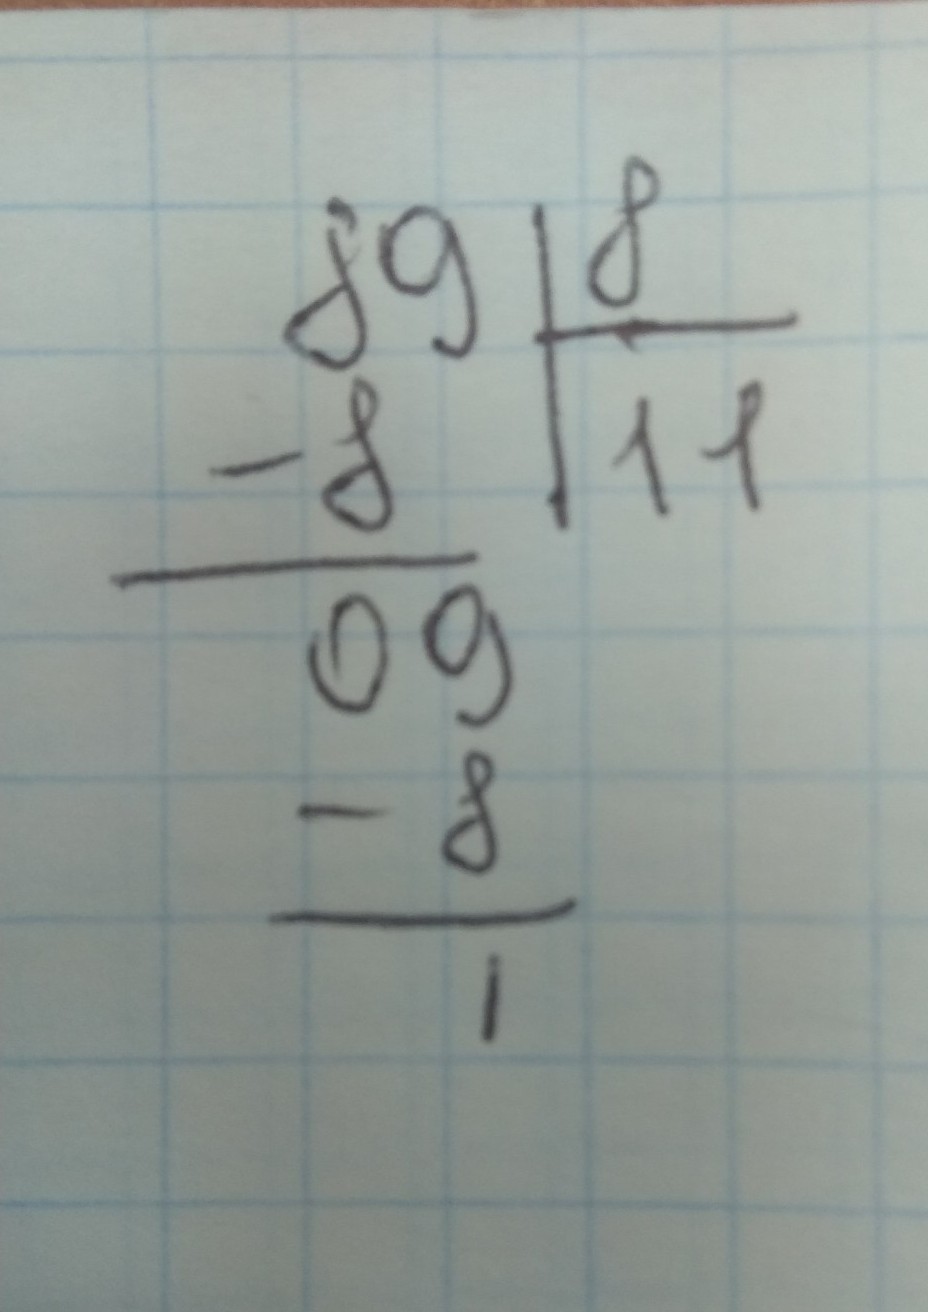 89 8
-8 11
09
-8
1